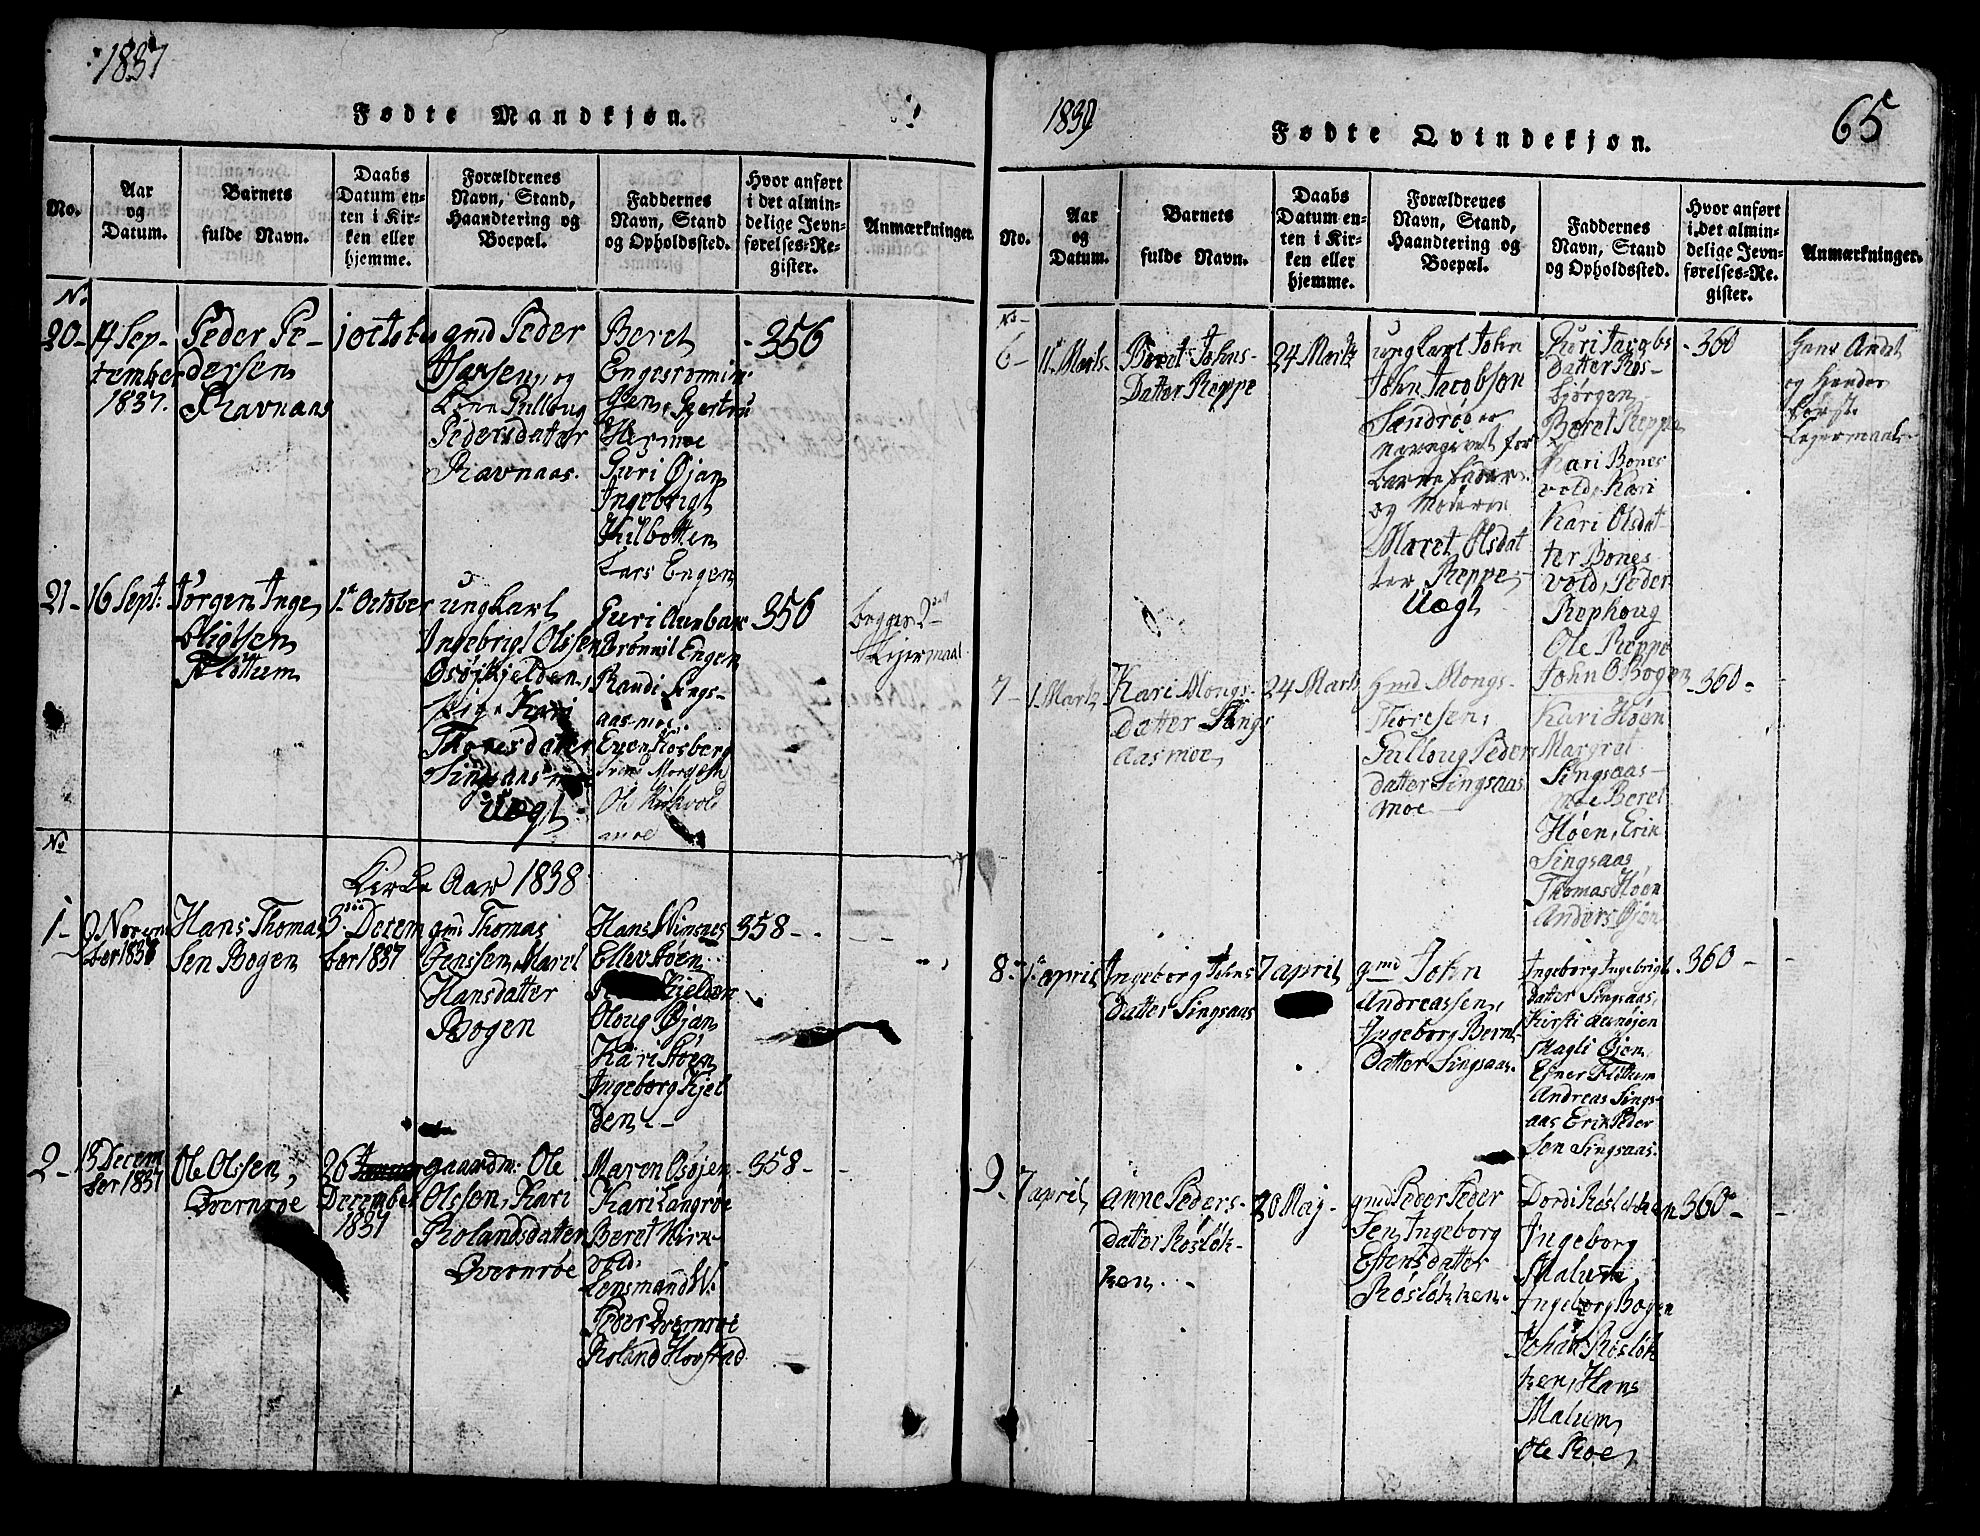 1837
Fødte Mandkjøn.
No.
Aar
og
Datum.
Barnets
fulde Navn.
Daabs
Datum en-
ten i Kir-
ken eller
hjemme.
Forældrenes
Navn, Stand,
Haandtering og
Boepæl.
Faddernes
Navn, Stand
og Opholdssted.
Hvor anført
i det almin-
delige Jevn-
førelses-Re-
gister.
Anmærkninger.
No
20-
14 Sep-
tember
1837.
Peder Pe-
dersen
Ravnaas
1 octobr
gmd Peder
Hansen, og
Pedersdatter
Ravnaas.
Beret
Hermoe
Guri Øjan
Ingebrigt
Kilbotten
Lars Engen
356
21-
16 Sept:
Jørgen Inge
brigtsen
Flöttum
1. October
ungkarl
Ingebrigt Olssen
Osøjkjelden,
pige Kari
Thoresdatter
Singsaas
Uægt
Guri Aunbak
Brönnil Engen
Randi Sings-
aasmoe
Even Kosberg
Ole Kirkvold
moe
356
begges 2det
Lejermaal
No
Kirke Aar 1838
1-
9 Novem
ber 1837
Hans Thomas
Sen Bogen
3die Decem
ber 1837
gmd Thomas
Jenssen, Maret
Hansdatter
Bogen
Hans Winsnes
Ellev Høen
Kjelden
Oloug Øjan
Kari Høen
Ingeborg Kjel
den
358-
2-
13 Decem
ber 1837
Ole Olssen,
Overnrøe
26
December
1837
gaardm: Ole
Olsson, Kari
Rolandsdatter
Overnröe
Maren Osøjen
Kari Langröe
Beret Kirk
vold.
Lensmand W.
Peder Overnroe
Roland Hovstad
358-
1839
65
Fødte Qvindekjøn.
No.
Aar
og
Datum.
Barnets
fulde Navn.
Daabs
Datum en-
ten i Kir-
ken eller
hjemme.
Forældrenes
Navn, Stand,
Haandtering og
Boepæl.
Faddernes
Navn, Stand
og Opholdssted.
Hvor anført
i det almin-
delige Jevn-
førelses-Re-
gister.
Anmærkninger.
No-
6-
11 Marts
Beret Johns-
Datter Reppe
24 Martz
ungkarl John
John Jacobson
Sandrö er
navngivet for
Barnefader
og Moderen
Maret Olsdat
ter Reppe,
Uægt
Guri Jacobs
Datter Ros-
bjørgen,
Beret Reppe
Kari Bones
vold, Kari
Kari Olsdat
ter Bones-
vold, Peder
Rephoug
Ole Reppe
John O Bogen
360
hans Andet
og Hendes
første
Lejermaal
7-
1. Martz
Kari Mongs-
datter Sings
aasmoe,
24 Marts
gmd Mongs-
Thoresen,
Gulloug Peders
datter Singsaas
moe
Kari Høen
Margret
Singsaas-
moe Beret
Høen, Erik
Singsaas
Thomas Høen
Anders Øjen
360-
8-
1. april
Ingeborg Johns
Datter Singsaas
7 april
gmd John
Andreassen,
Ingeborg Bernt
Datter Singsaas.
Ingeborg Ingebrigt
Datter Singsaas,
Kirsti Aunøjen
Magli Øjen
Esner Flöttum
Andreas Sings-
aas Erik Peder
Sen Singsaas.
360-
9-
7 april
Anne Peders-
datter Røsløk-
ken
20 Maj
gmd Peder Peder
Sen, Ingeborg
Estensdatter
Røsløkken.
Dordi Røsløkken
Ingeborg
Malum,
Ingeborg Bogen
Johan Røsløk
ken, Hans
Malum,
Ole Roe,
360-